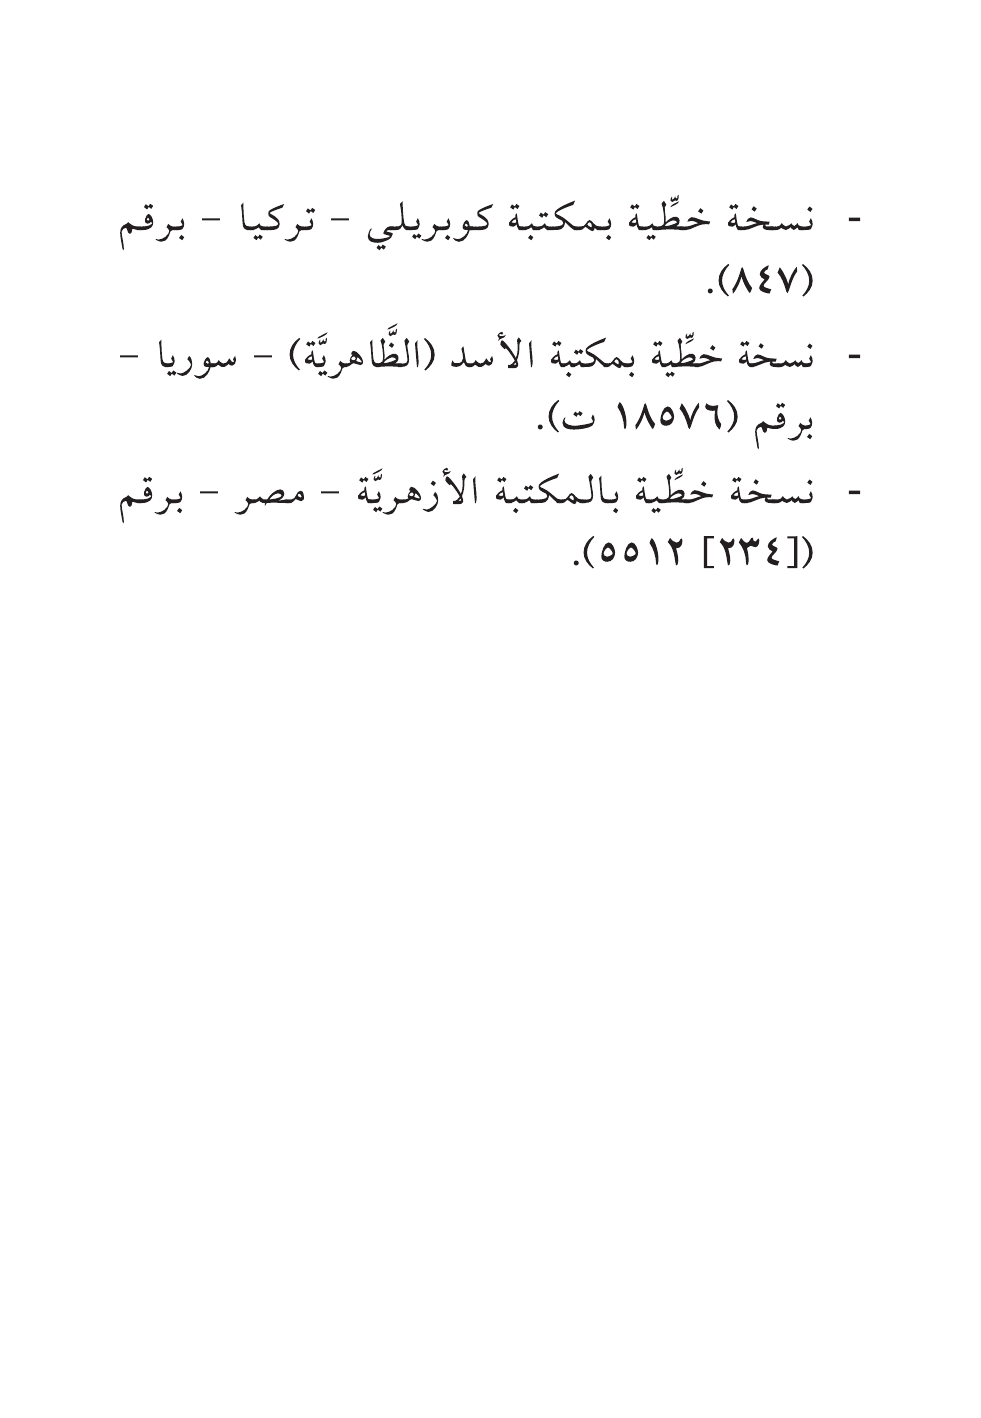 - نسخة خطِّية بمكتبة كوبريلي – تركيا – برقم
(٨٤٧).
- نسخة خطِّية بمكتبة الأسد (الظَّاهريَّة) – سوريا –
برقم (١٨٥٧٦ ت).
- نسخة خطِّية بالمكتبة الأزهريَّة – مصر – برقم
([٢٣٤] ٥٥١٢).